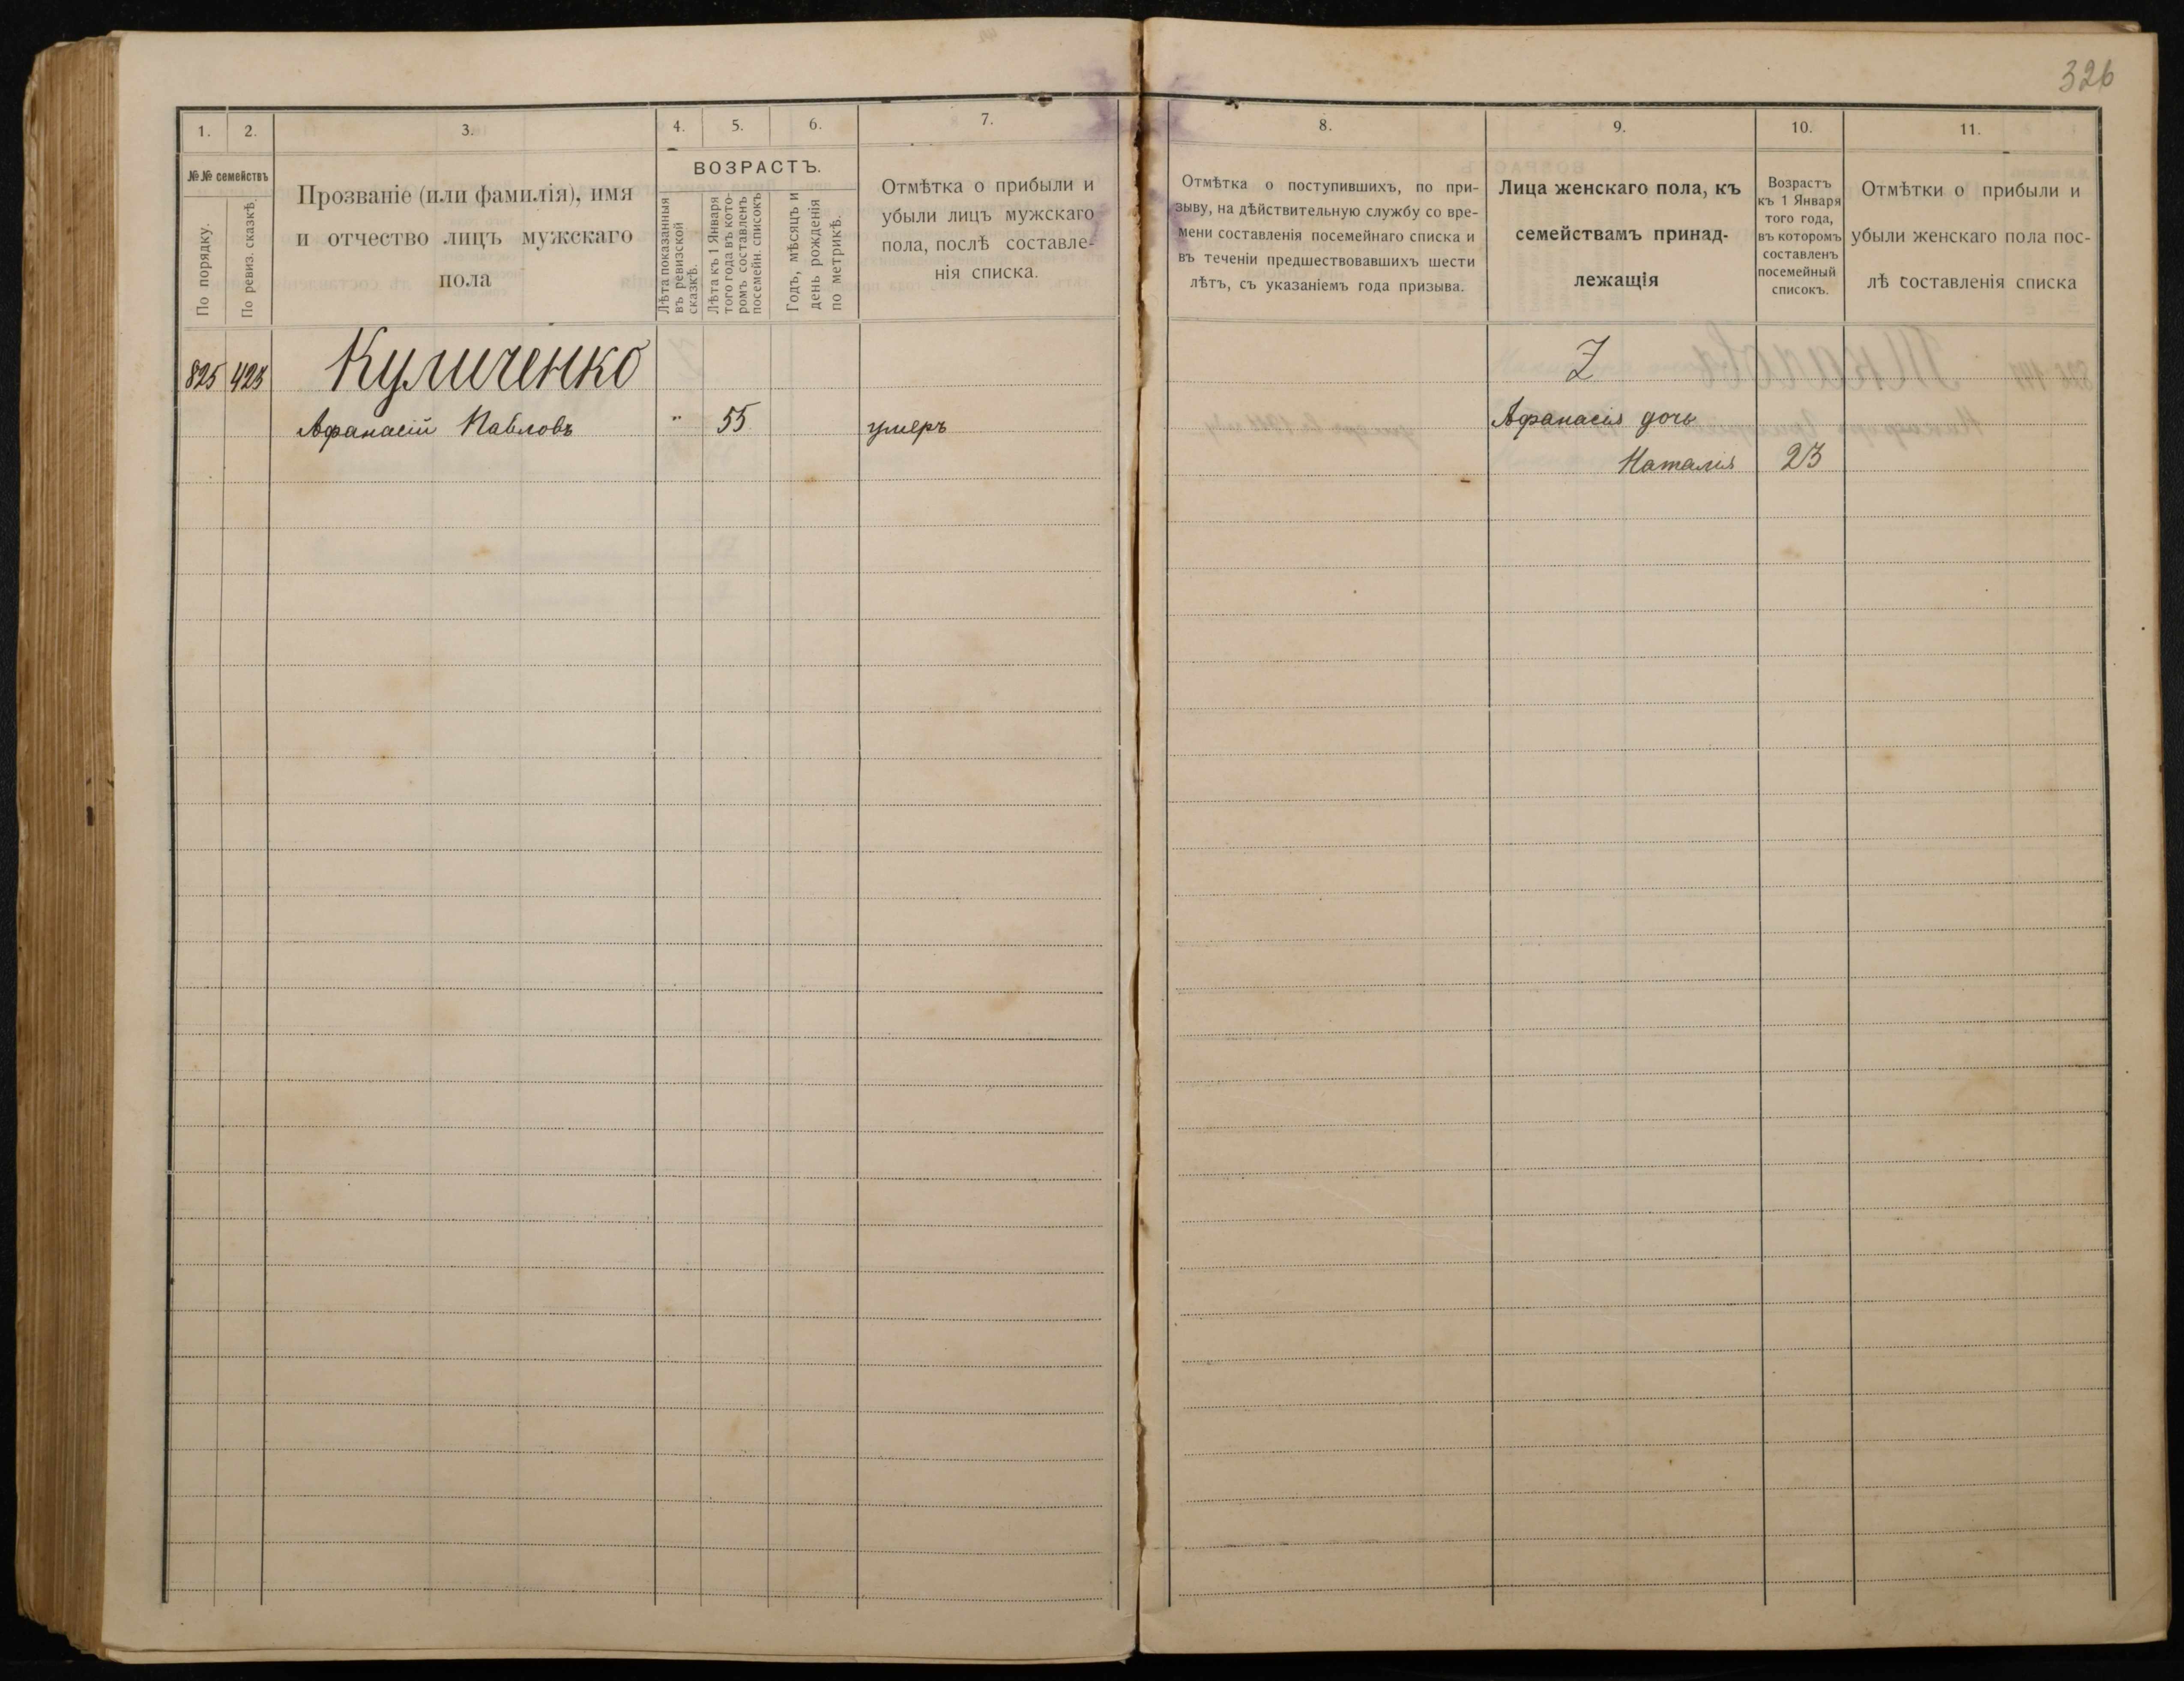 326
1. 2. 3. 4. 5. 6. 7.
№№ семействъ
По порядку.
По ревиз. сказкѣ.
Прозваніе (или фамилія), имя
и отчество лицъ мужскаго
пола
ВОЗРАСТЪ.
Лѣта показанныя
въ ревизской
сказкѣ.
Лѣта къ 1 Января
того года въ кото-
ромъ составленъ
посемейн. списокъ
Годъ, мѣсяцъ и
день рожденія
по метрикѣ.
Отмѣтка о прибыли и
убыли лицъ мужскаго
пола, послѣ составле-
нія списка.
825 425 Куличенко
Афанасій Павловъ " 55 умеръ
8. 9. 10. 11.
Отмѣтка о поступившихъ, по при-
зыву, на дѣйствительную службу со вре-
мени составленія посемейнаго списка и
въ теченіи предшествовавшихъ шести
лѣтъ, съ указаніемъ года призыва.
Лица женскаго пола, къ
семействамъ принад-
лежащія
Возрастъ
къ 1 Января
того года,
въ которомъ
составленъ
посемейный
списокъ.
Отмѣтки о прибыли и
убыли женскаго пола пос-
лѣ составленія списка
Афанасія дочь
Наталія 23